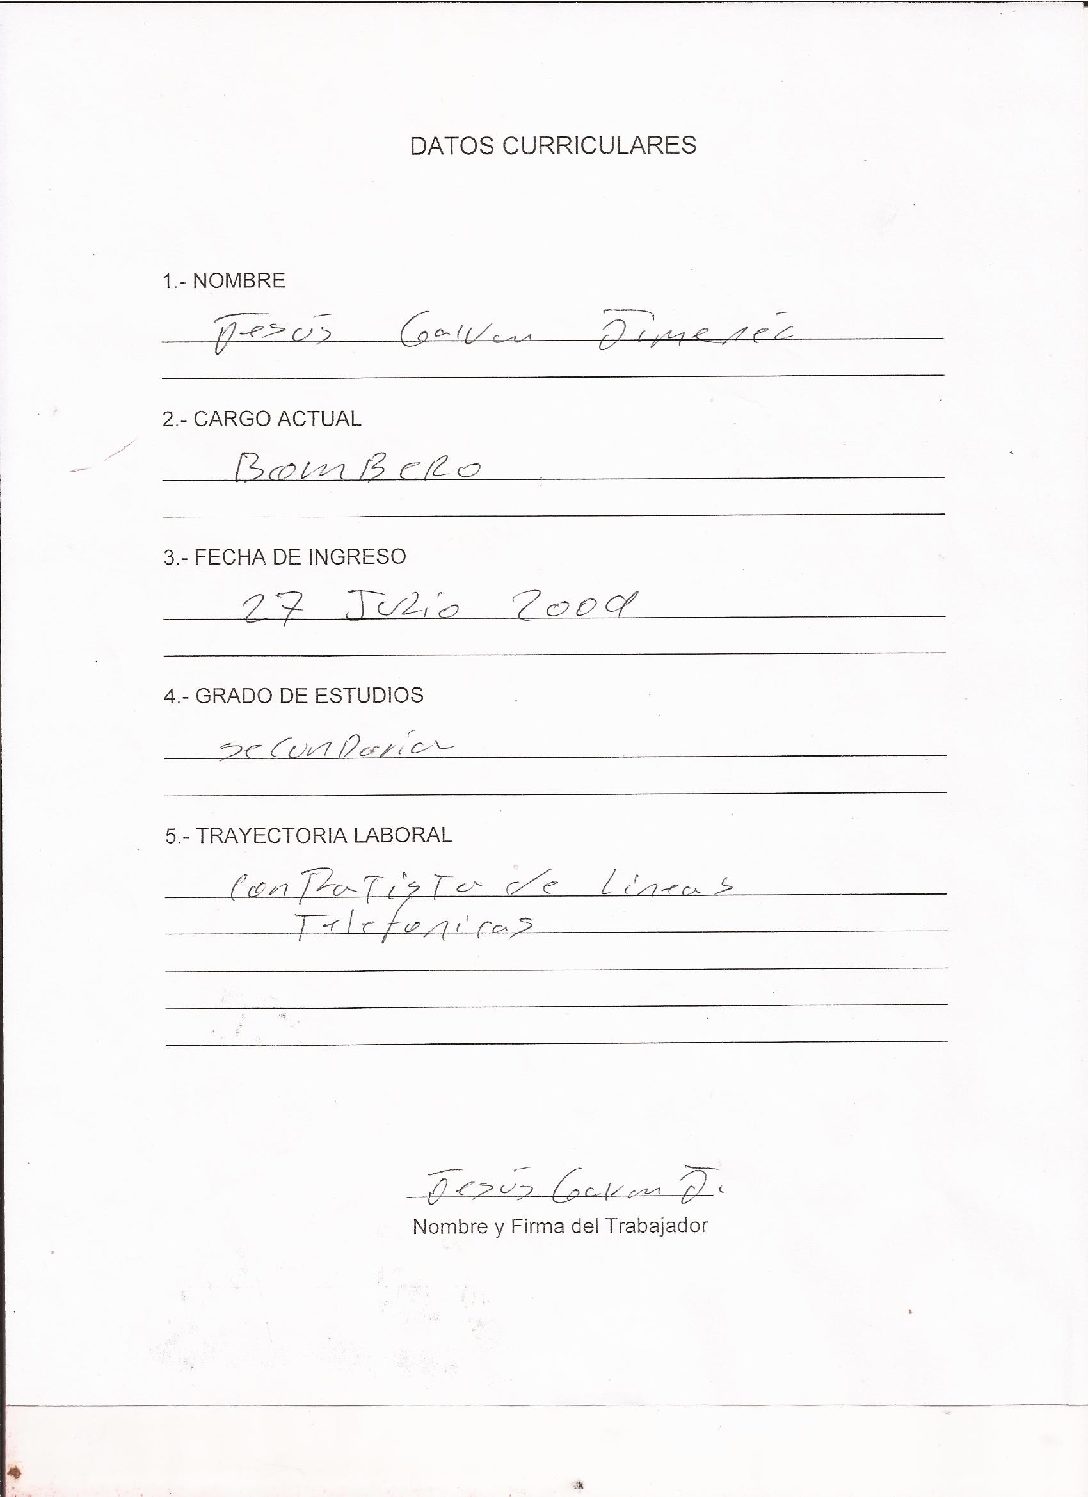 DATOS CURRICULARES
1.- NOMBRE
Jesús Galvan Jimenéz
2.- CARGO ACTUAL
BomBERO
3.- FECHA DE INGRESO
27 Julio 2009
4.- GRADO DE ESTUDIOS
secunDaria
5.- TRAYECTORIA LABORAL
conTRaTisTa de Lineas
Telefonicas
Jesús Galvan J.
Nombre y Firma del Trabajador